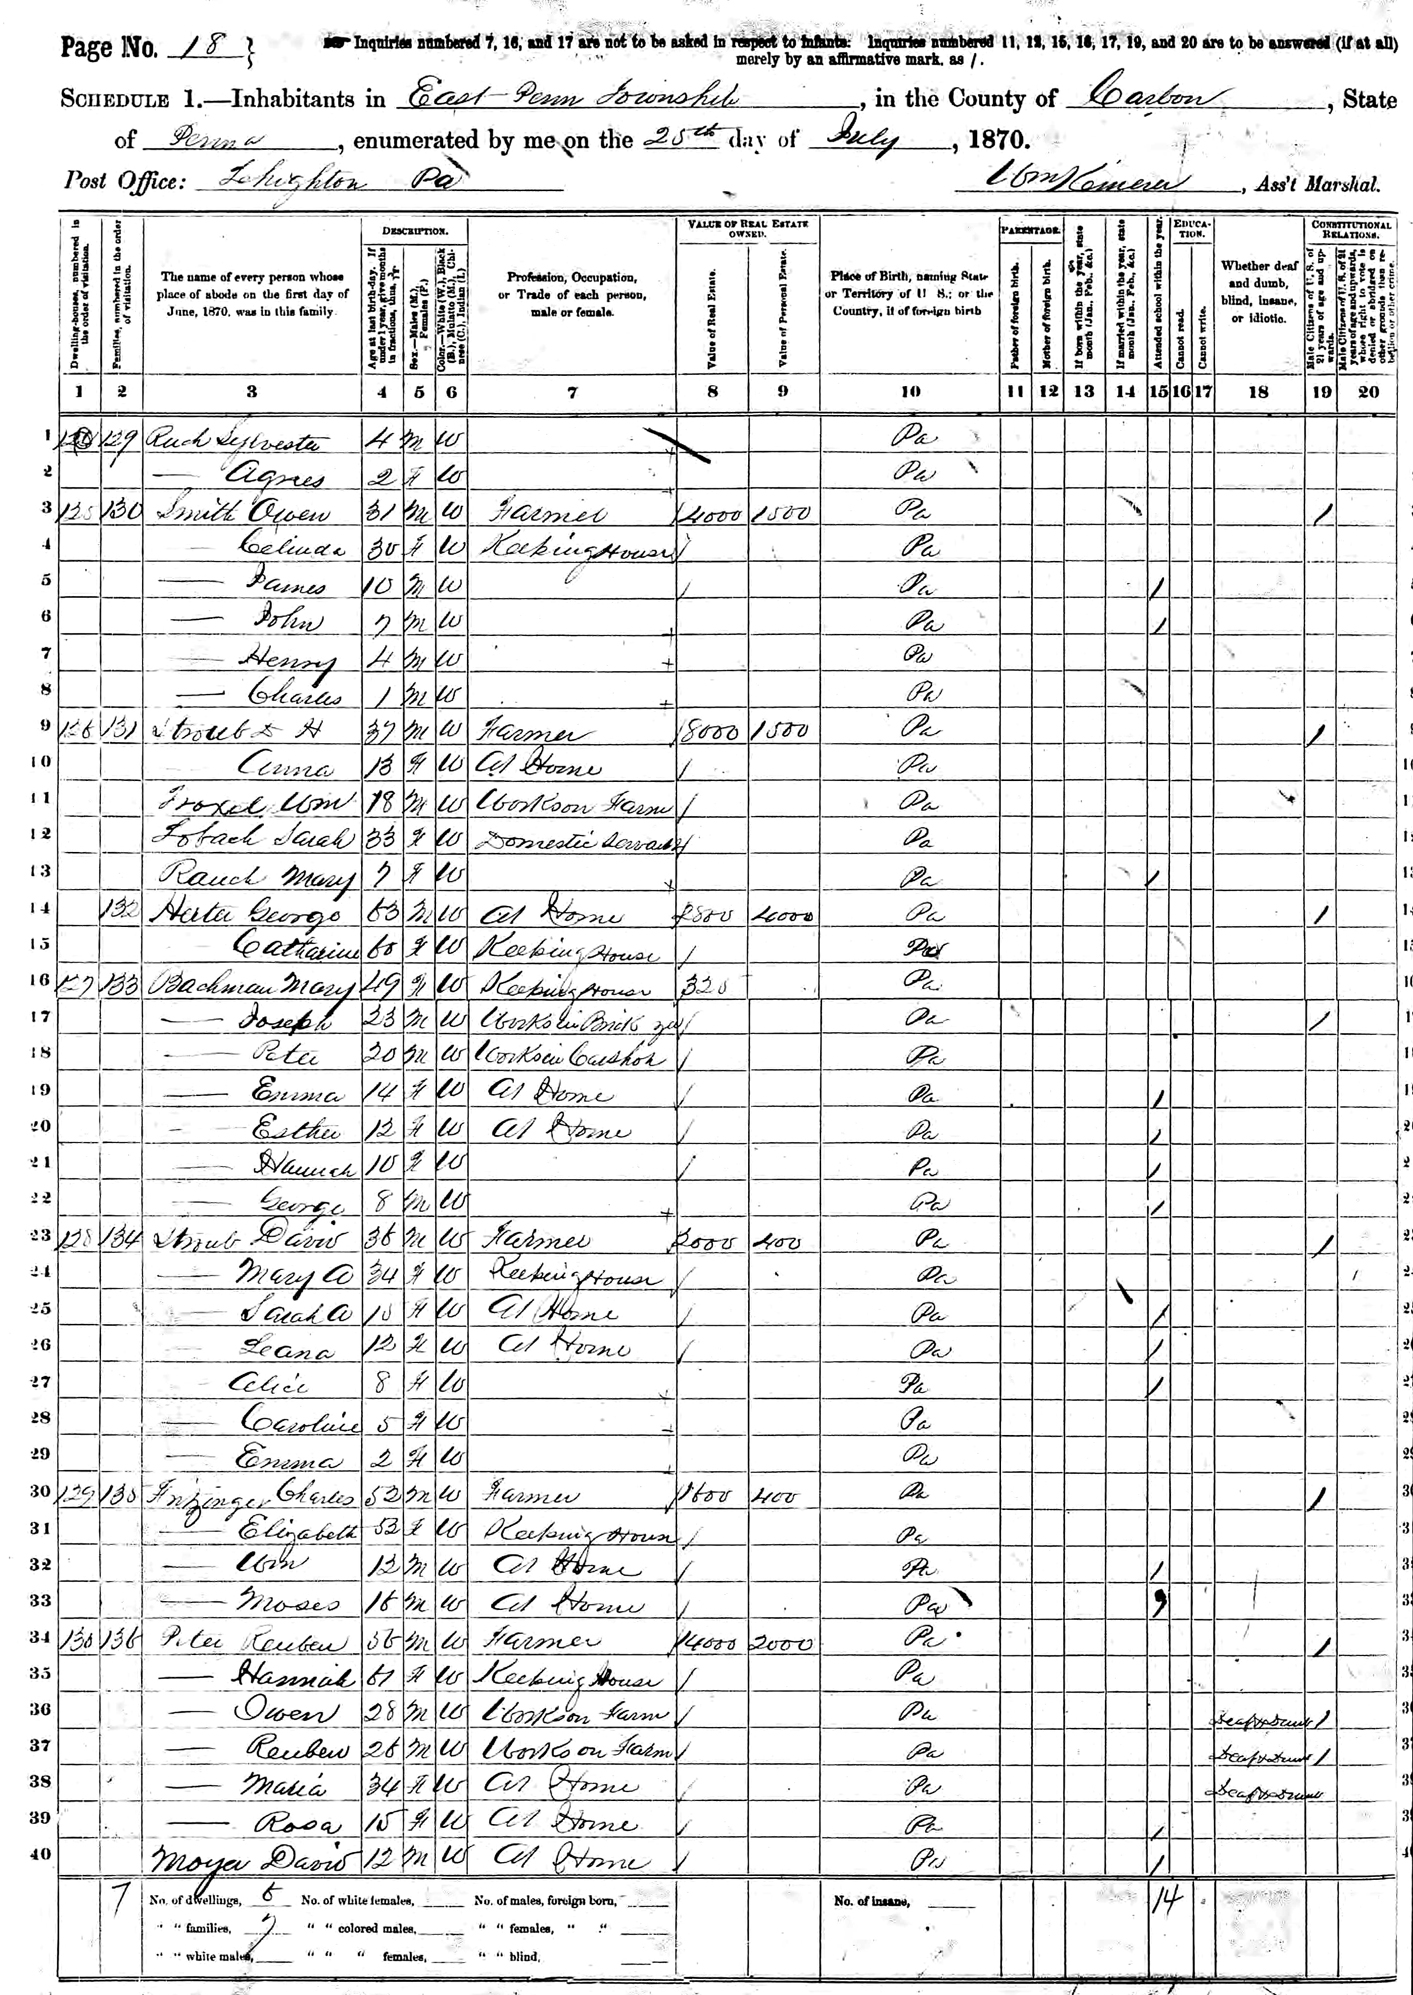 Page No. 18
Inquiries numbered 7, 16, and 17 are not to be asked in respect to infants. Inquiries numbered 11, 12, 15, 16, 17, 19, and 20 are to be answered (if at all)
merely by an affirmative mark, as /.
SCHEDULE 1.—Inhabitants in East Penn Township, in the County of Carbon, State
of Penna, enumerated by me on the 25th day of July, 1870.
Post Office: Lehighton Pa
Wm Kemerer, Ass't Marshal.
Dwelling-houses, numbered in the order of visitation.
Families, numbered in the order of visitation.
The name of every person whose place of abode on the first day of June, 1870, was in this family.
DESCRIPTION.
Age at last birth-day. If under 1 year, give months in fractions, thus,
Sex.—Males (M.), Females (F.)
Color.—White (W.), Black (B.), Mulatto (M.), Chinese (C.), Indian (I.)
Profession, Occupation, or Trade of each person, male or female.
VALUE OF REAL ESTATE OWNED.
Value of Real Estate.
Value of Personal Estate.
Place of Birth, naming State or Territory of U. S.; or the Country, if of foreign birth
PARENTAGE.
Father of foreign birth.
Mother of foreign birth.
If born within the year, state month (Jan., Feb., &c.)
If married within the year, state month (Jan., Feb., &c.)
Attended school within the year.
EDUCATION.
Cannot read.
Cannot write.
Whether deaf and dumb, blind, insane, or idiotic.
CONSTITUTIONAL RELATIONS.
Male Citizens of U. S. of 21 years of age and upwards.
Male Citizens of U. S. of 21 years of age and upwards, whose right to vote is denied or abridged on other grounds than rebellion or other crime.
1 2 3 4 5 6 7 8 9 10 11 12 13 14 15 16 17 18 19 20
1 129 Ruch Sylvester 4 M W Pa
2 — Agnes 2 F W Pa
3 125 130 Smith Owen 31 M W Farmer 4000 1500 Pa /
4 — Celinda 30 F W Keeping House Pa
5 — James 10 M W Pa /
6 — John 7 M W Pa /
7 — Henry 4 M W Pa
8 — Charles 1 M W Pa
9 126 131 Stroub D H 37 M W Farmer 8000 1500 Pa /
10 — Anna 13 F W At Home Pa
11 Troxel Wm 18 M W Works on Farm Pa
12 Lobach Sarah 33 F W Domestic Servant Pa
13 Rauch Mary 7 F W Pa /
14 132 George 63 M W At Home Pa /
15 Catharine 60 F W Keeping House Pa
16 127 133 Bachman Mary 49 F W Keeping House 320 Pa
17 — Joseph 23 M W Works in Brick Pa /
18 — Peter 20 M W Works in Pa
19 — Emma 14 F W At Home Pa /
20 — Esther 12 F W At Home Pa /
21 — Hannah 10 F W Pa /
22 — George 8 M W Pa /
23 128 134 Stroub David 36 M W Farmer 3000 400 Pa /
24 — Mary A 34 F W Keeping House Pa
25 — Sarah A 15 F W At Home Pa /
26 — Leana 12 F W At Home Pa /
27 — Alice 8 F W Pa /
28 — Caroline 5 F W Pa
29 — Emma 2 F W Pa
30 129 135 Fritzinger Charles 52 M W Farmer 1600 400 Pa /
31 — Elizabeth 52 F W Keeping House Pa
32 — Wm 12 M W At Home Pa /
33 — Moses 16 M W At Home Pa /
34 130 136 Peter Reuben 56 M W Farmer 4000 2000 Pa /
35 — Hannah 61 F W Keeping House Pa
36 — Owen 28 M W Works on Farm Pa Deaf & Dumb /
37 — Reuben 26 M W Works on Farm Pa Deaf & Dumb /
38 — Maria 34 F W At Home Pa Deaf & Dumb
39 — Rosa 15 F W At Home Pa /
40 Moyer David 12 M W At Home Pa /
7 No. of dwellings, 6 No. of white females, No. of males, foreign born, No. of insane, 14
" " families, 7 " " colored males, " " females, " "
" " white males, " " " females, " " blind,